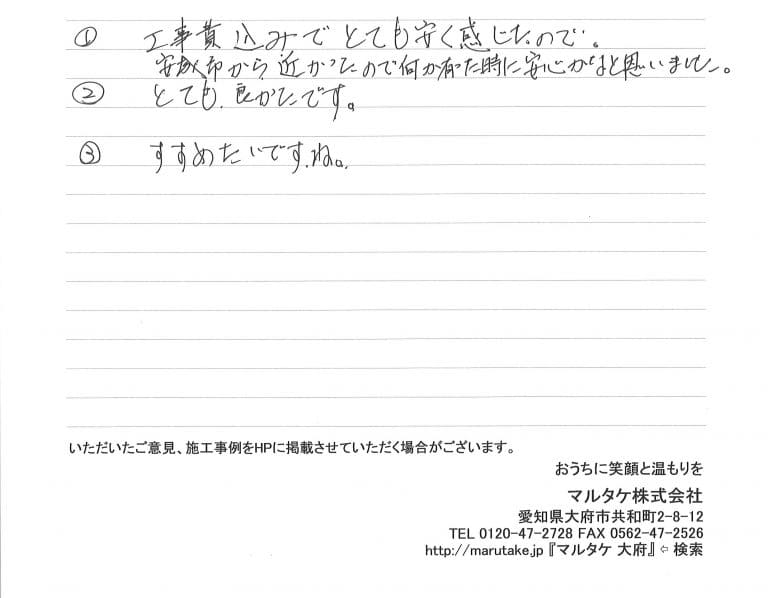 ① 工事費込みでとても安く感じたので。
安城市から近かったので何か有った時に安心かなと思いました。
② とても良かたです。
③ すすめたいですね。
いただいたご意見、施工事例をHPに掲載させていただく場合がございます。
おうちに笑顔と温もりを
マルタケ株式会社
愛知県大府市共和町2-8-12
TEL 0120-47-2728 FAX 0562-47-2526
http://marutake.jp 『マルタケ 大府』⇦ 検索